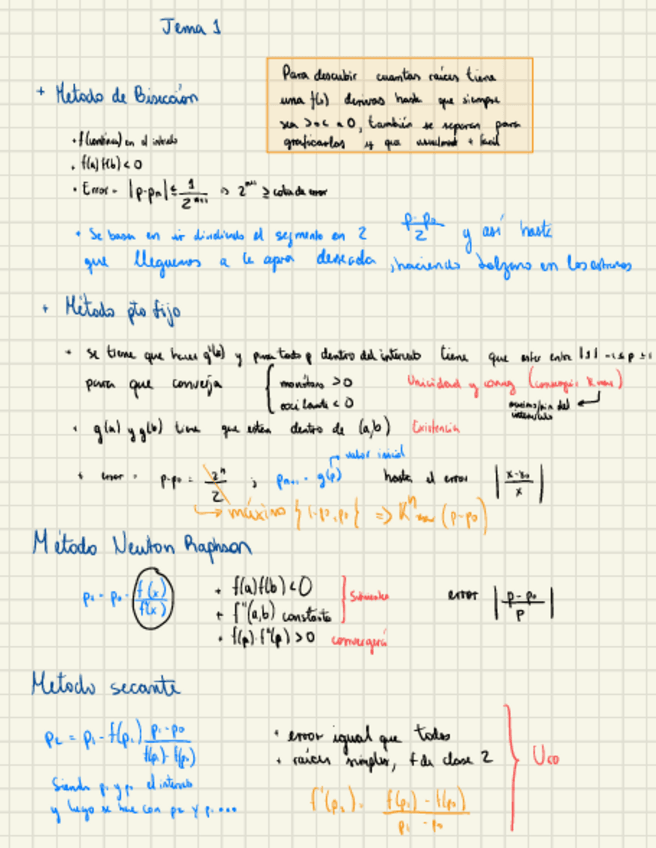 Tema 1
Para descubrir cuantas raíces tiene
una f(x) derivas hasta que siempre
sea > o < a 0, también se separan para
graficarlos y que usualmente + facil
+ Metodo de Bisección
• f(continua) en el intervalo
• f(a) f(b) < 0
• Error = |p-pn| ≤ 1/2^(n+1) ⇒ 2^(n+1) ≥ cota de error
• Se basa en ir dividiendo el segmento en 2 (p-p0)/2 y así hasta
que lleguemos a la aprox deseada, haciendo bolzano en los extremos
+ Método pto fijo
• se tiene que hacer g'(x) y para todo p dentro del intervalo tiene que estar entre |1| -1 ≤ p ≤ 1
para que converja { monótona > 0
oscilante < 0
Unicidad y conv (convergir K max)
máximo/min del
intervalo
• g(a) y g(b) tiene que estar dentro de (a,b) Existencia
valor inicial
• error = p-p0 = 2^n/2 ; pn+1 = g(p) hasta el error |(x-x0)/x|
→ máximo {1-p0, p0} ⇒ K^n max (p-p0)
Método Newton Raphson
p1 = p0 - f(x)/f'(x)
+ f(a) f(b) < 0
+ f''(a,b) constante
• f(p) · f''(p) > 0 convergerá
error |(p-p0)/p|
Metodo secante
p2 = p1 - f(p1) (p1-p0)/(f(p1)-f(p0))
Siendo p1 y p0 el intervalo
y luego se hace con p2 y p1...
• error igual que todos
+ raíces simples, f de clase 2
f'(p1) = (f(p1) - f(p0))/(p1 - p0)